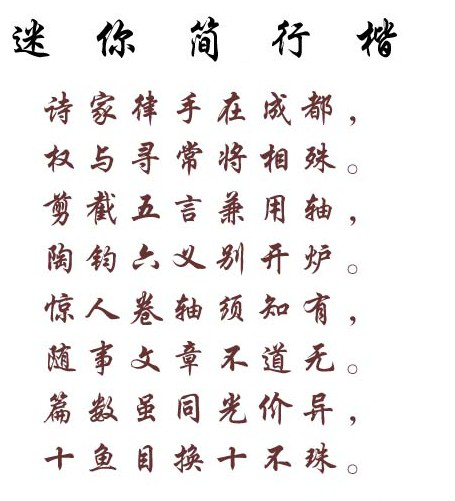 迷你简行楷
诗家律手在成都，
权与寻常将相殊。
剪截五言兼用轴，
陶钧六义别开炉。
惊人卷轴须知有，
随事文章不道无。
篇数虽同光价异，
十鱼目换十不珠。